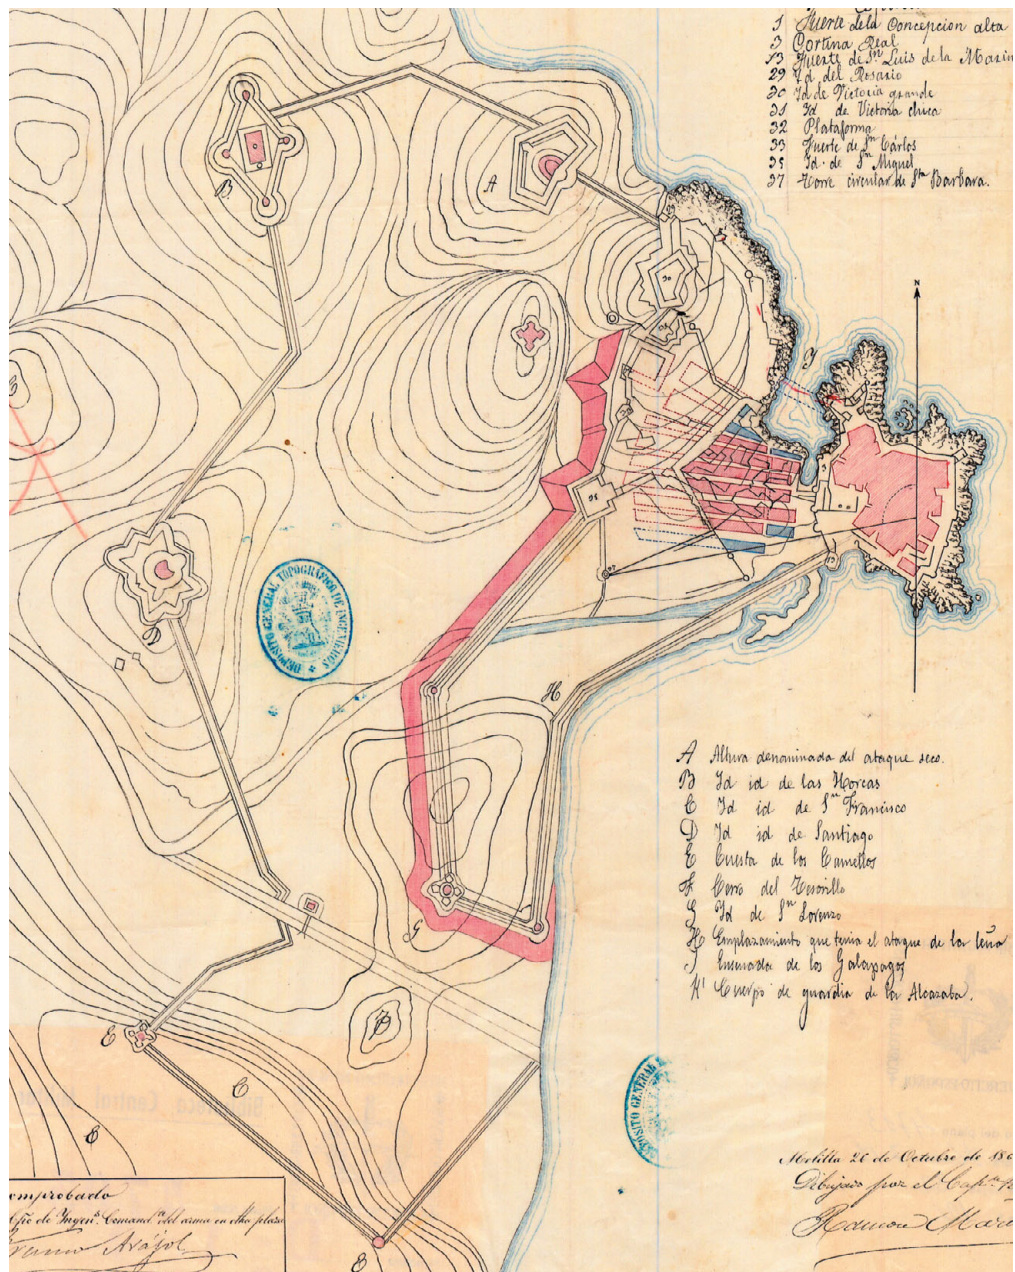 1 Fuerte de la Concepcion alta
3 Cortina Real
13 Fuerte de Sn Luis de la Marin
29 Id del Rosario
30 Id de Victoria grande
31 Id de Victoria chica
32 Plataforma
33 Fuerte de Sn Cárlos
35 Id. de Sn Miguel
37 Torre circular de Sta Barbara.
B
A
D
H
G
F
E
C
E
E
J
N
DEPOSITO GENERAL TOPOGRÁFICO DE INGENIEROS
A Altura denominada del ataque seco.
B Id id de las Horcas
C Id id de Sn Francisco
D Id id de Santiago
E Cuesta de los Camellos
F Cerro del Tesorillo
G Id de Sn Lorenzo
H Emplazamiento que tenia el ataque de la leña
J Ensenada de los Galapagos
H' Cuerpo de guardia de la Alcazaba.
DEPOSITO GENERAL
Melilla 26 de Octubre de 186
Dibujado por el Capn
Ramon
omprobado
Comandte del arma en dha plaza
Arájol